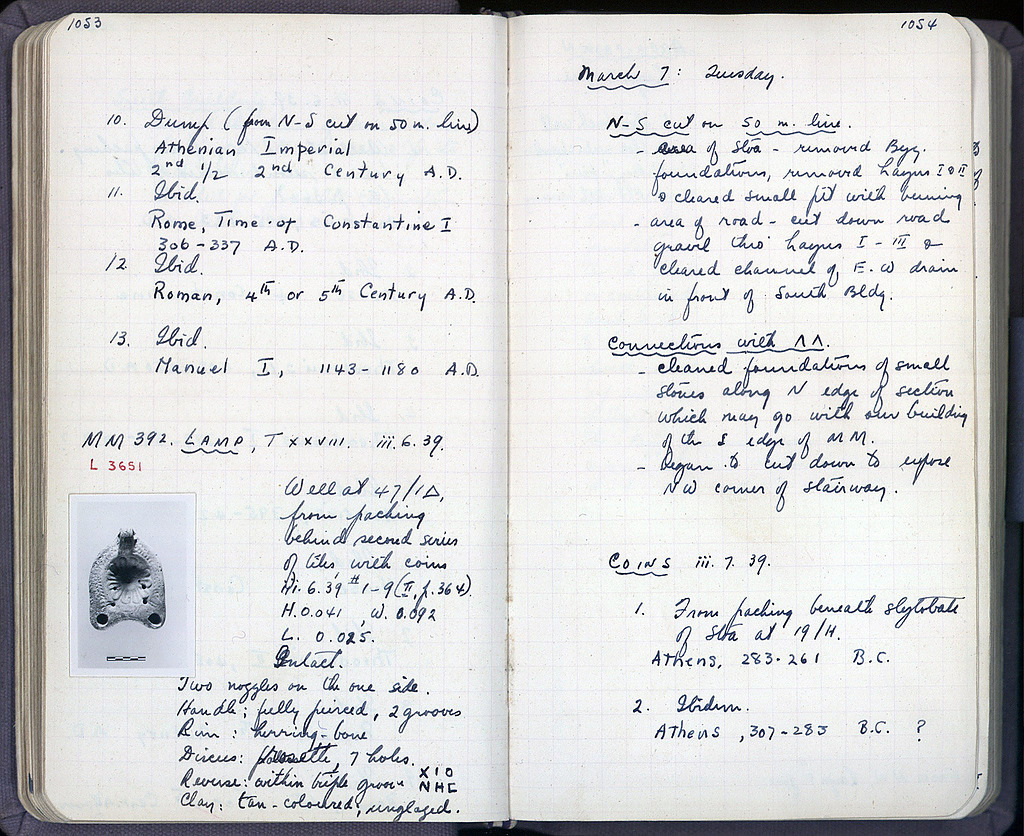 1053
10. Dump (from N-S cut on 50 m. line)
Athenian Imperial
2nd 1/2 2nd Century A.D.
11. Ibid.
Rome, Time of Constantine I
306-337 A.D.
12. Ibid.
Roman, 4th or 5th Century A.D.
13. Ibid.
Manuel I, 1143-1180 A.D.
MM 392. LAMP, T XXVIII iii.6.39.
L 3651
Well at 47/ΙΔ,
from packing
behind second series
of tiles, with coins
iii.6.39 #1-9 (II, p.364)
H. 0.041, W. 0.092
L. 0.025.
Intact.
Two nozzles on the one side.
Handle; fully pierced, 2 grooves
Rim: herring-bone
Discus: rosette, 7 holes.
Reverse: within triple groove ΧΙΟ
ΝΗC
Clay: tan-coloured; unglazed.
1054
March 7: Tuesday.
N-S cut on 50 m. line.
- area of Stoa - removed Byz.
foundations, removed Layers I & II
& cleared small pit with burning
- area of road - cut down road
gravel thro' Layers I - III &
cleared channel of E-W drain
in front of South Bldg.
Connections with ΛΛ.
- cleaned foundations of small
stones along N edge of section
which may go with our building
of the S edge of MM.
- began to cut down to expose
NW corner of stairway.
COINS iii.7.39.
1. From packing beneath stylobate
of Stoa at 19/Η.
Athens, 283-261 B.C.
2. Ibidem.
Athens, 307-283 B.C. ?